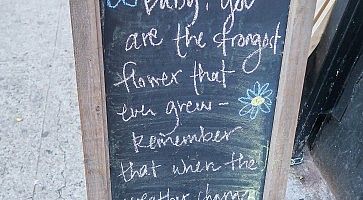 Baby, you
are the strongest
flower that
ever grew -
Remember
that when the
weather changes